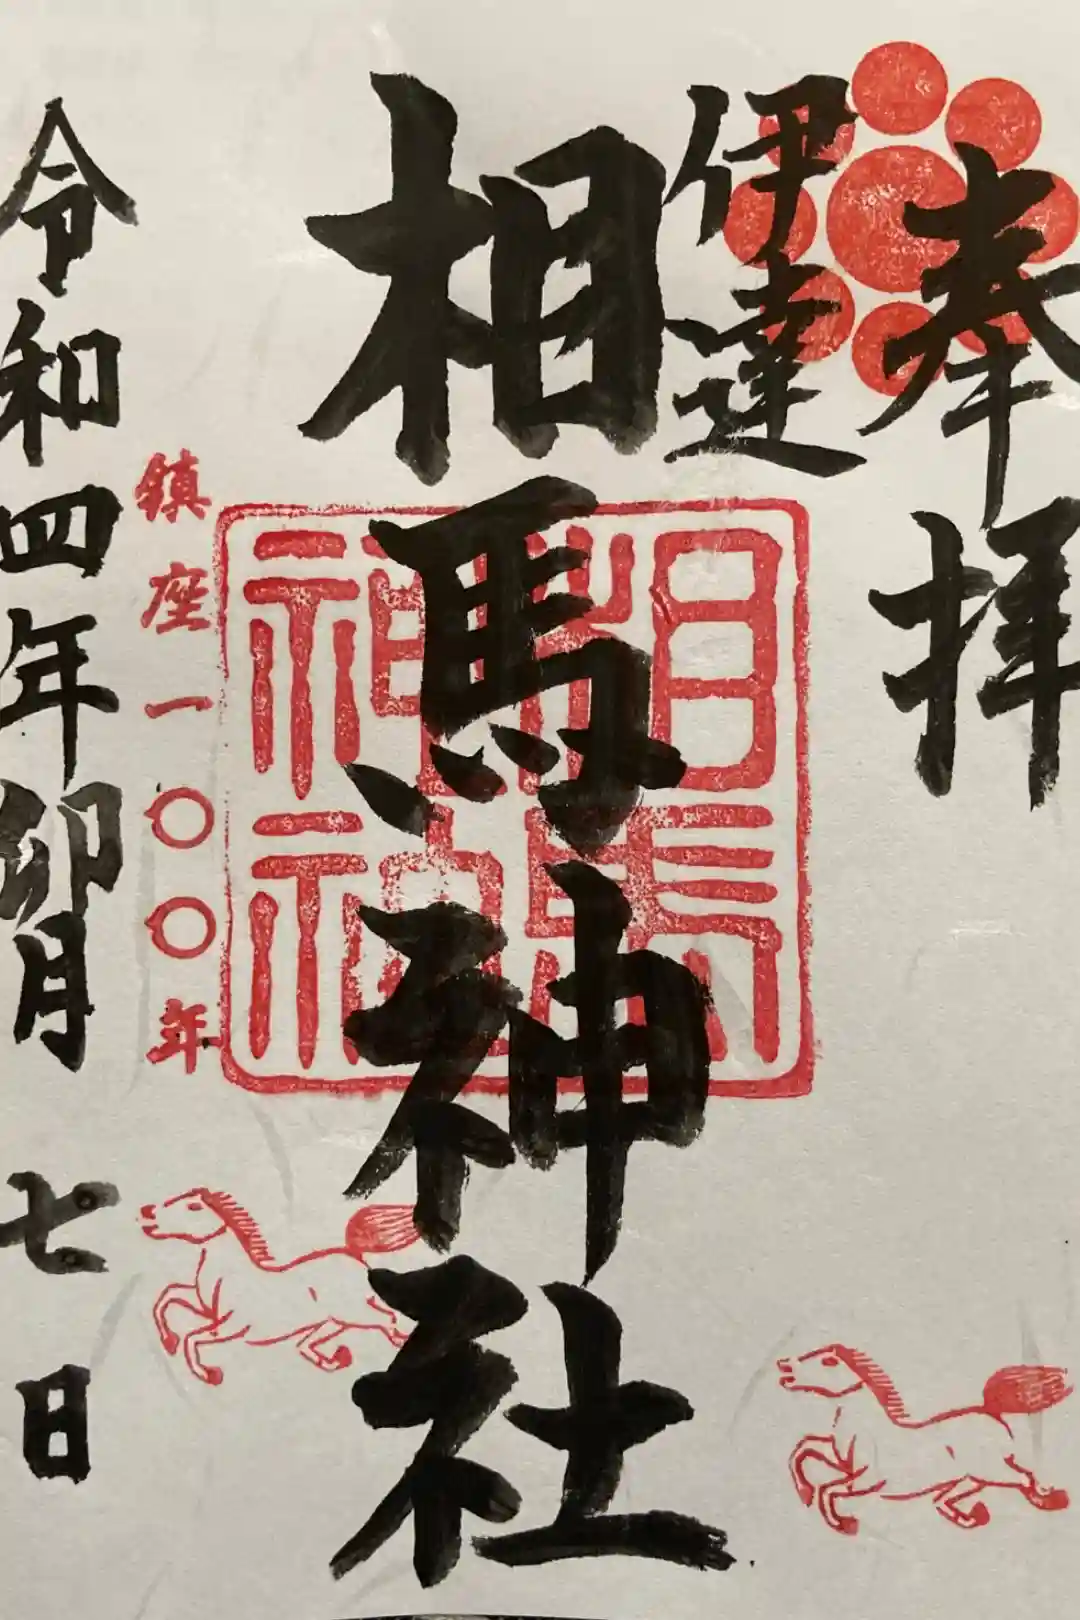 奉拝
伊達
相馬神社
相馬神社
鎮座一〇〇年
令和四年卯月七日